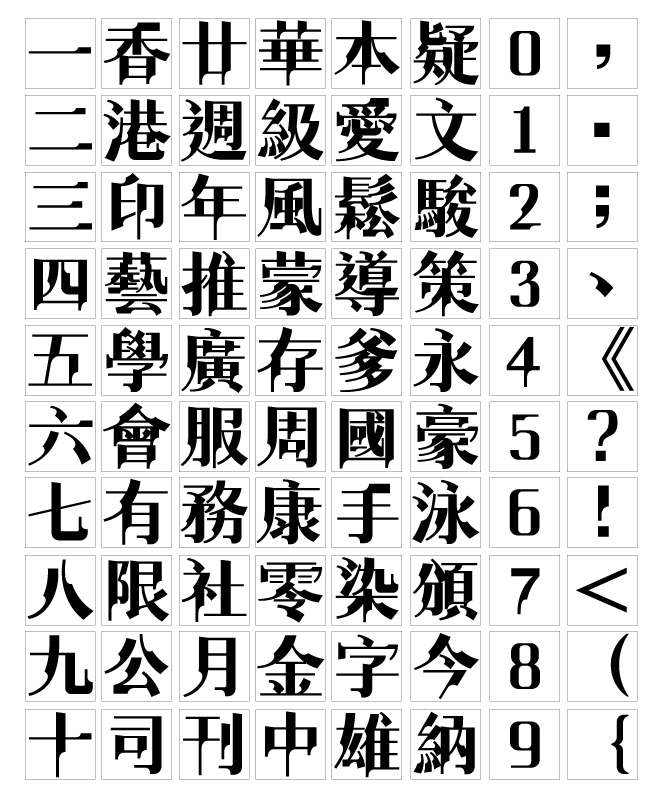 一香廿華本疑0，
二港週級愛文1．
三印年風鬆駿2；
四藝推蒙導策3、
五學廣存爹永4《
六會服周國豪5？
七有務康手泳6！
八限社零染頒7＜
九公月金字今8（
十司刊中雄納9｛